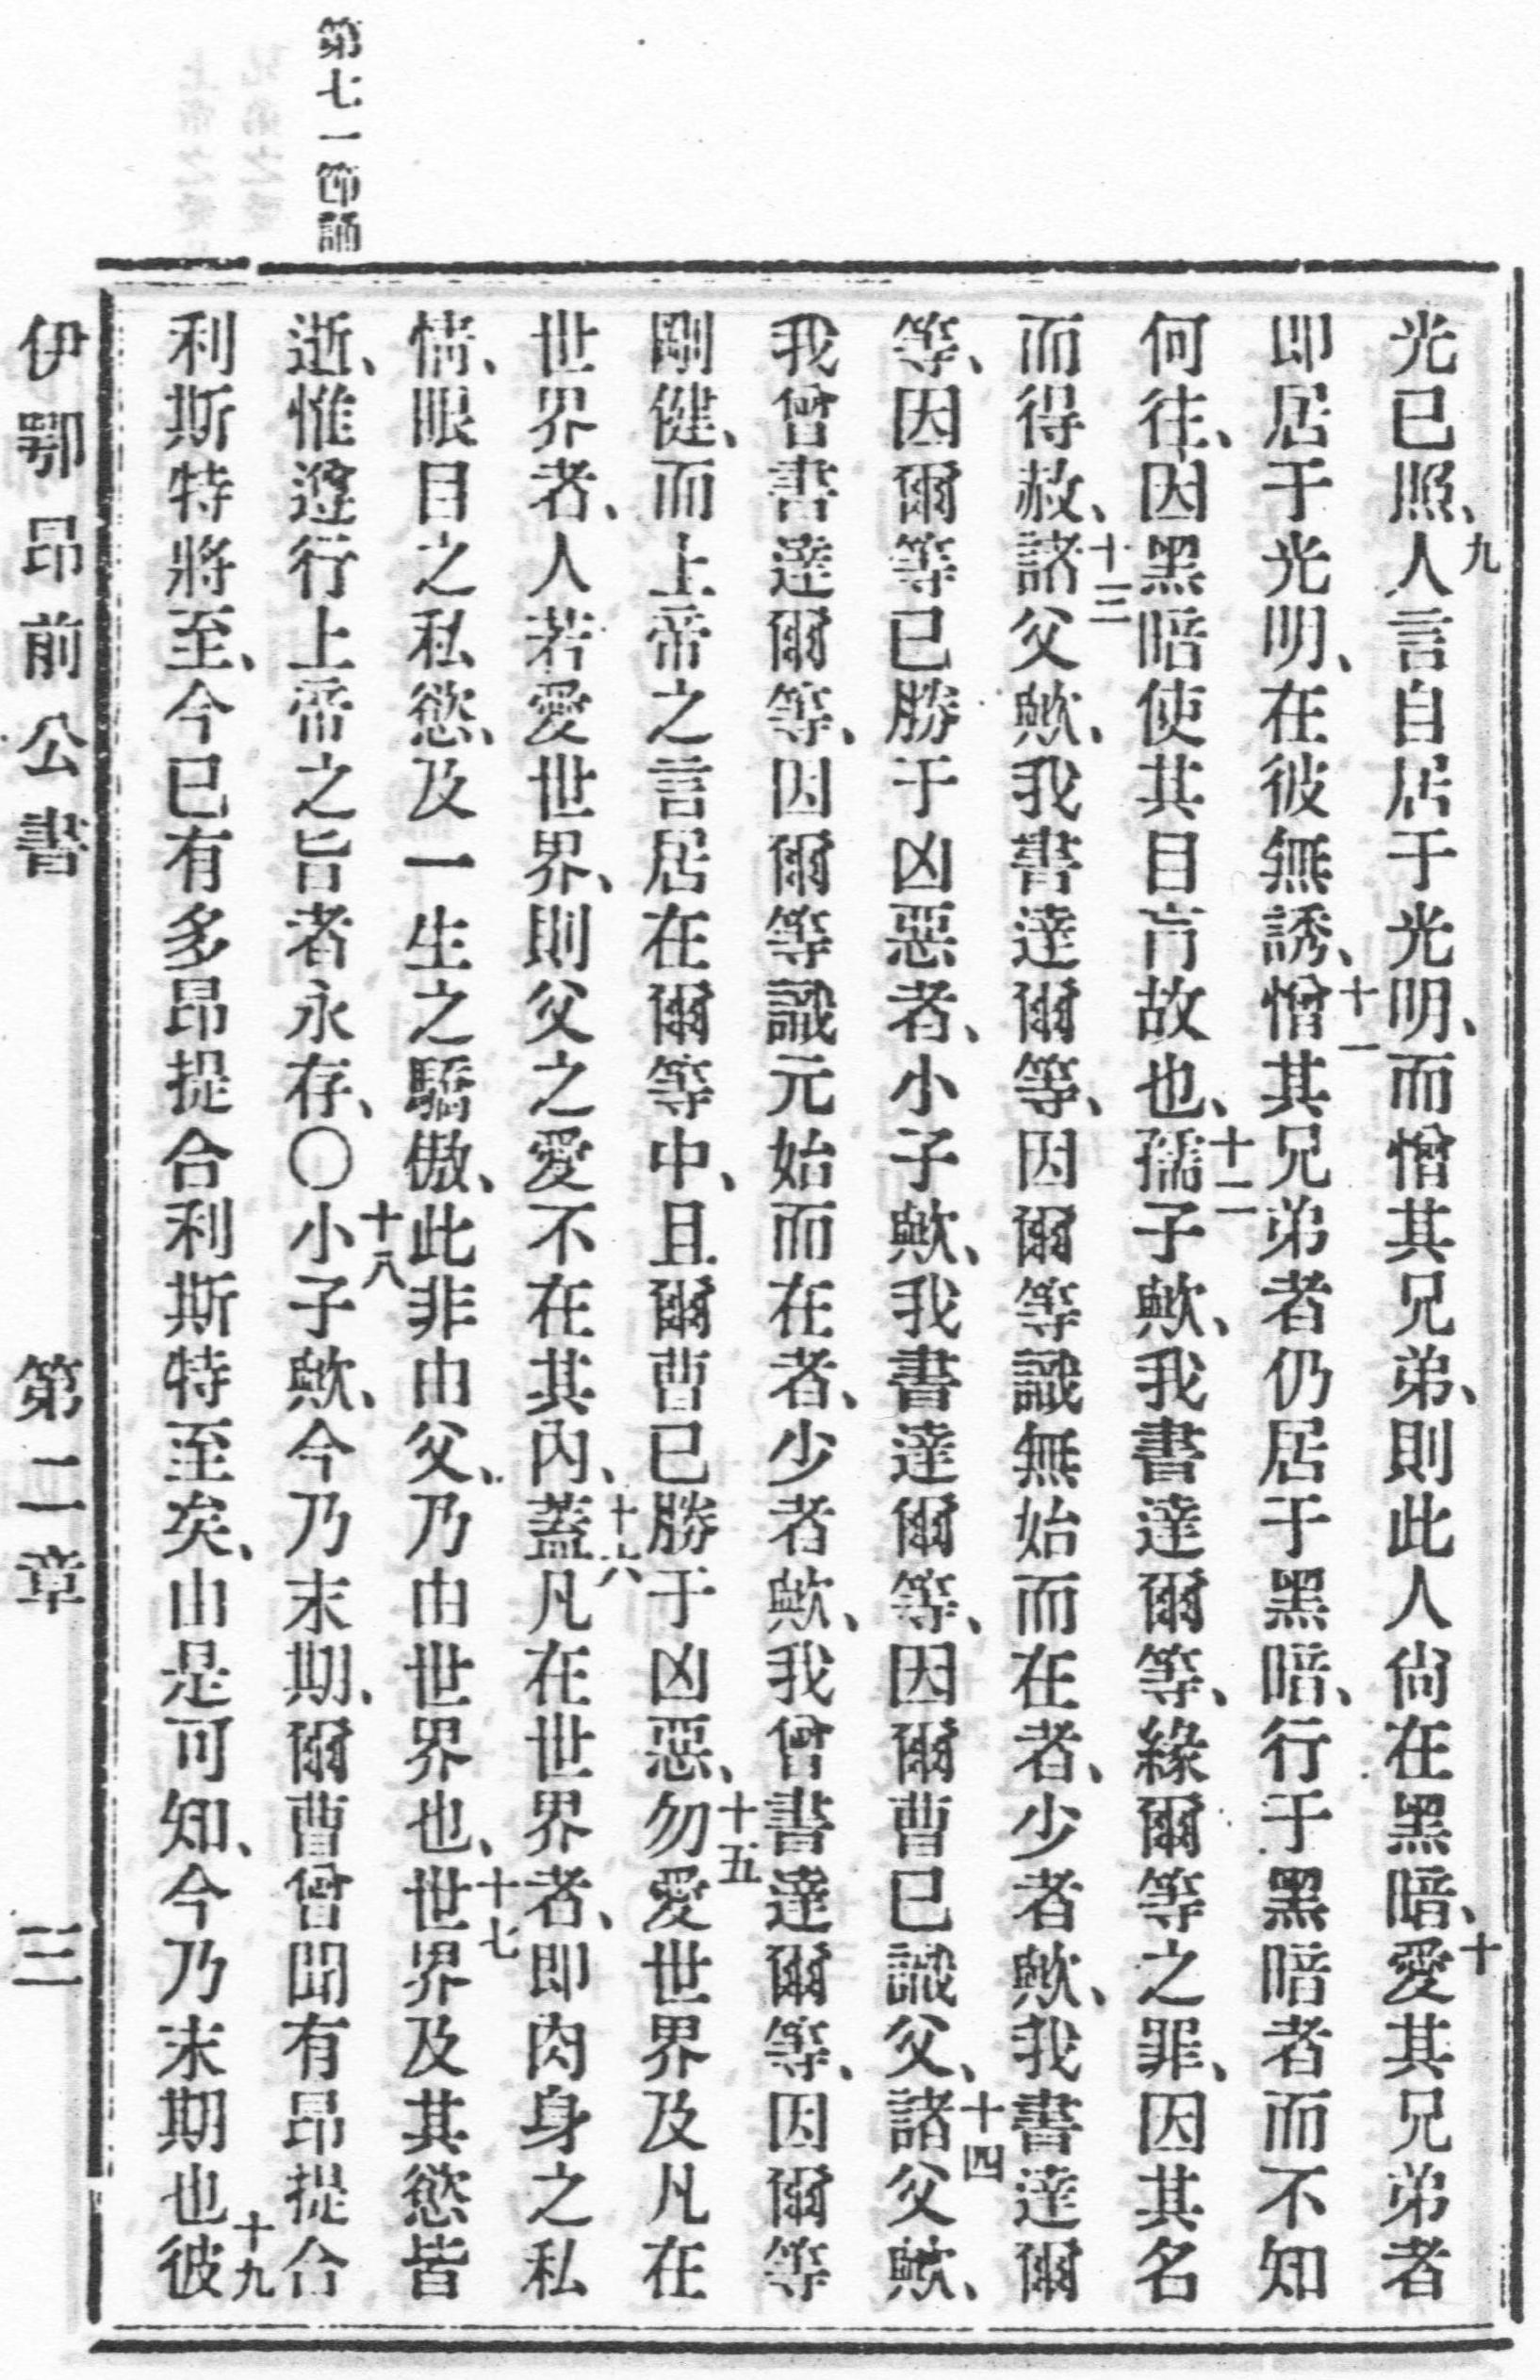 第七一節誦
光已照、九人言自居于光明、而憎其兄弟、則此人尙在黑暗、十愛其兄弟者
即居于光明、在彼無誘、十一憎其兄弟者仍居于黑暗、行于黑暗者而不知
何往、因黑暗使其目肓故也、十二孺子歟、我書達爾等、緣爾等之罪、因其名
而得赦、十三諸父歟、我書達爾等、因爾等識無始而在者、少者歟、我書達爾
等、因爾等已勝于凶惡者、小子歟、我書達爾等、因爾曹已識父、十四諸父歟、
我曾書達爾等、因爾等識元始而在者、少者歟、我曾書達爾等、因爾等
剛健、而上帝之言居在爾等中、且爾曹已勝于凶惡、十五勿愛世界及凡在
世界者、人若愛世界、則父之愛不在其內、十六蓋凡在世界者、即肉身之私
情、眼目之私慾、及一生之驕傲、此非由父、乃由世界也、十七世界及其慾皆
逝、惟遵行上帝之旨者永存、〇十八小子歟、今乃末期、爾曹曾聞有昂提合
利斯特將至、今已有多昂提合利斯特至矣、由是可知、今乃末期也十九彼
伊鄂昂前公書 第二章 三